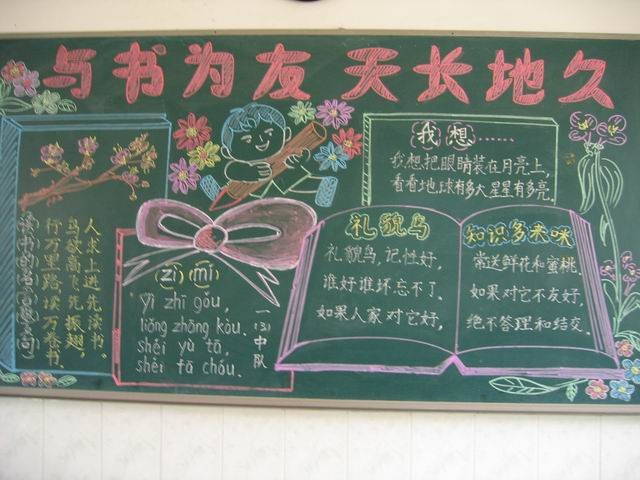 与书为友 天长地久
我想……
我想把眼睛装在月亮上,
看看地球有多大星星有多亮.
读书的名言警句
人求上进先读书.
鸟欲高飞先振翅,
行万里路,读万卷书.
(zì)(mí)
Yì zhī gǒu,
liǎng zhāng kǒu.
shéi yù tā,
shéi tā chóu.
一(3)中队
礼貌鸟
礼貌鸟,记性好,
谁好谁坏忘不了.
如果人家对它好,
知识多来咪
常送鲜花和蜜桃.
如果对它不友好,
绝不答理和结交.